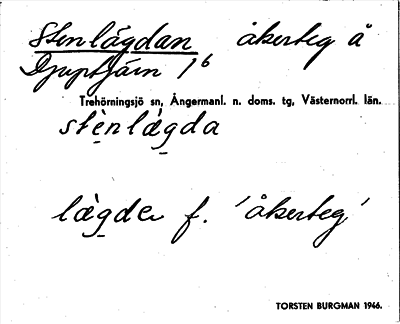 Stenlägdan åkerteg å
Djuptjärn 1⁶
Trehörningsjö sn, Ångermanl. n. doms. tg, Västernorrl. län.
stènlæ̀gda
læ̀gde f. 'åkerteg'
TORSTEN BURGMAN 1946.